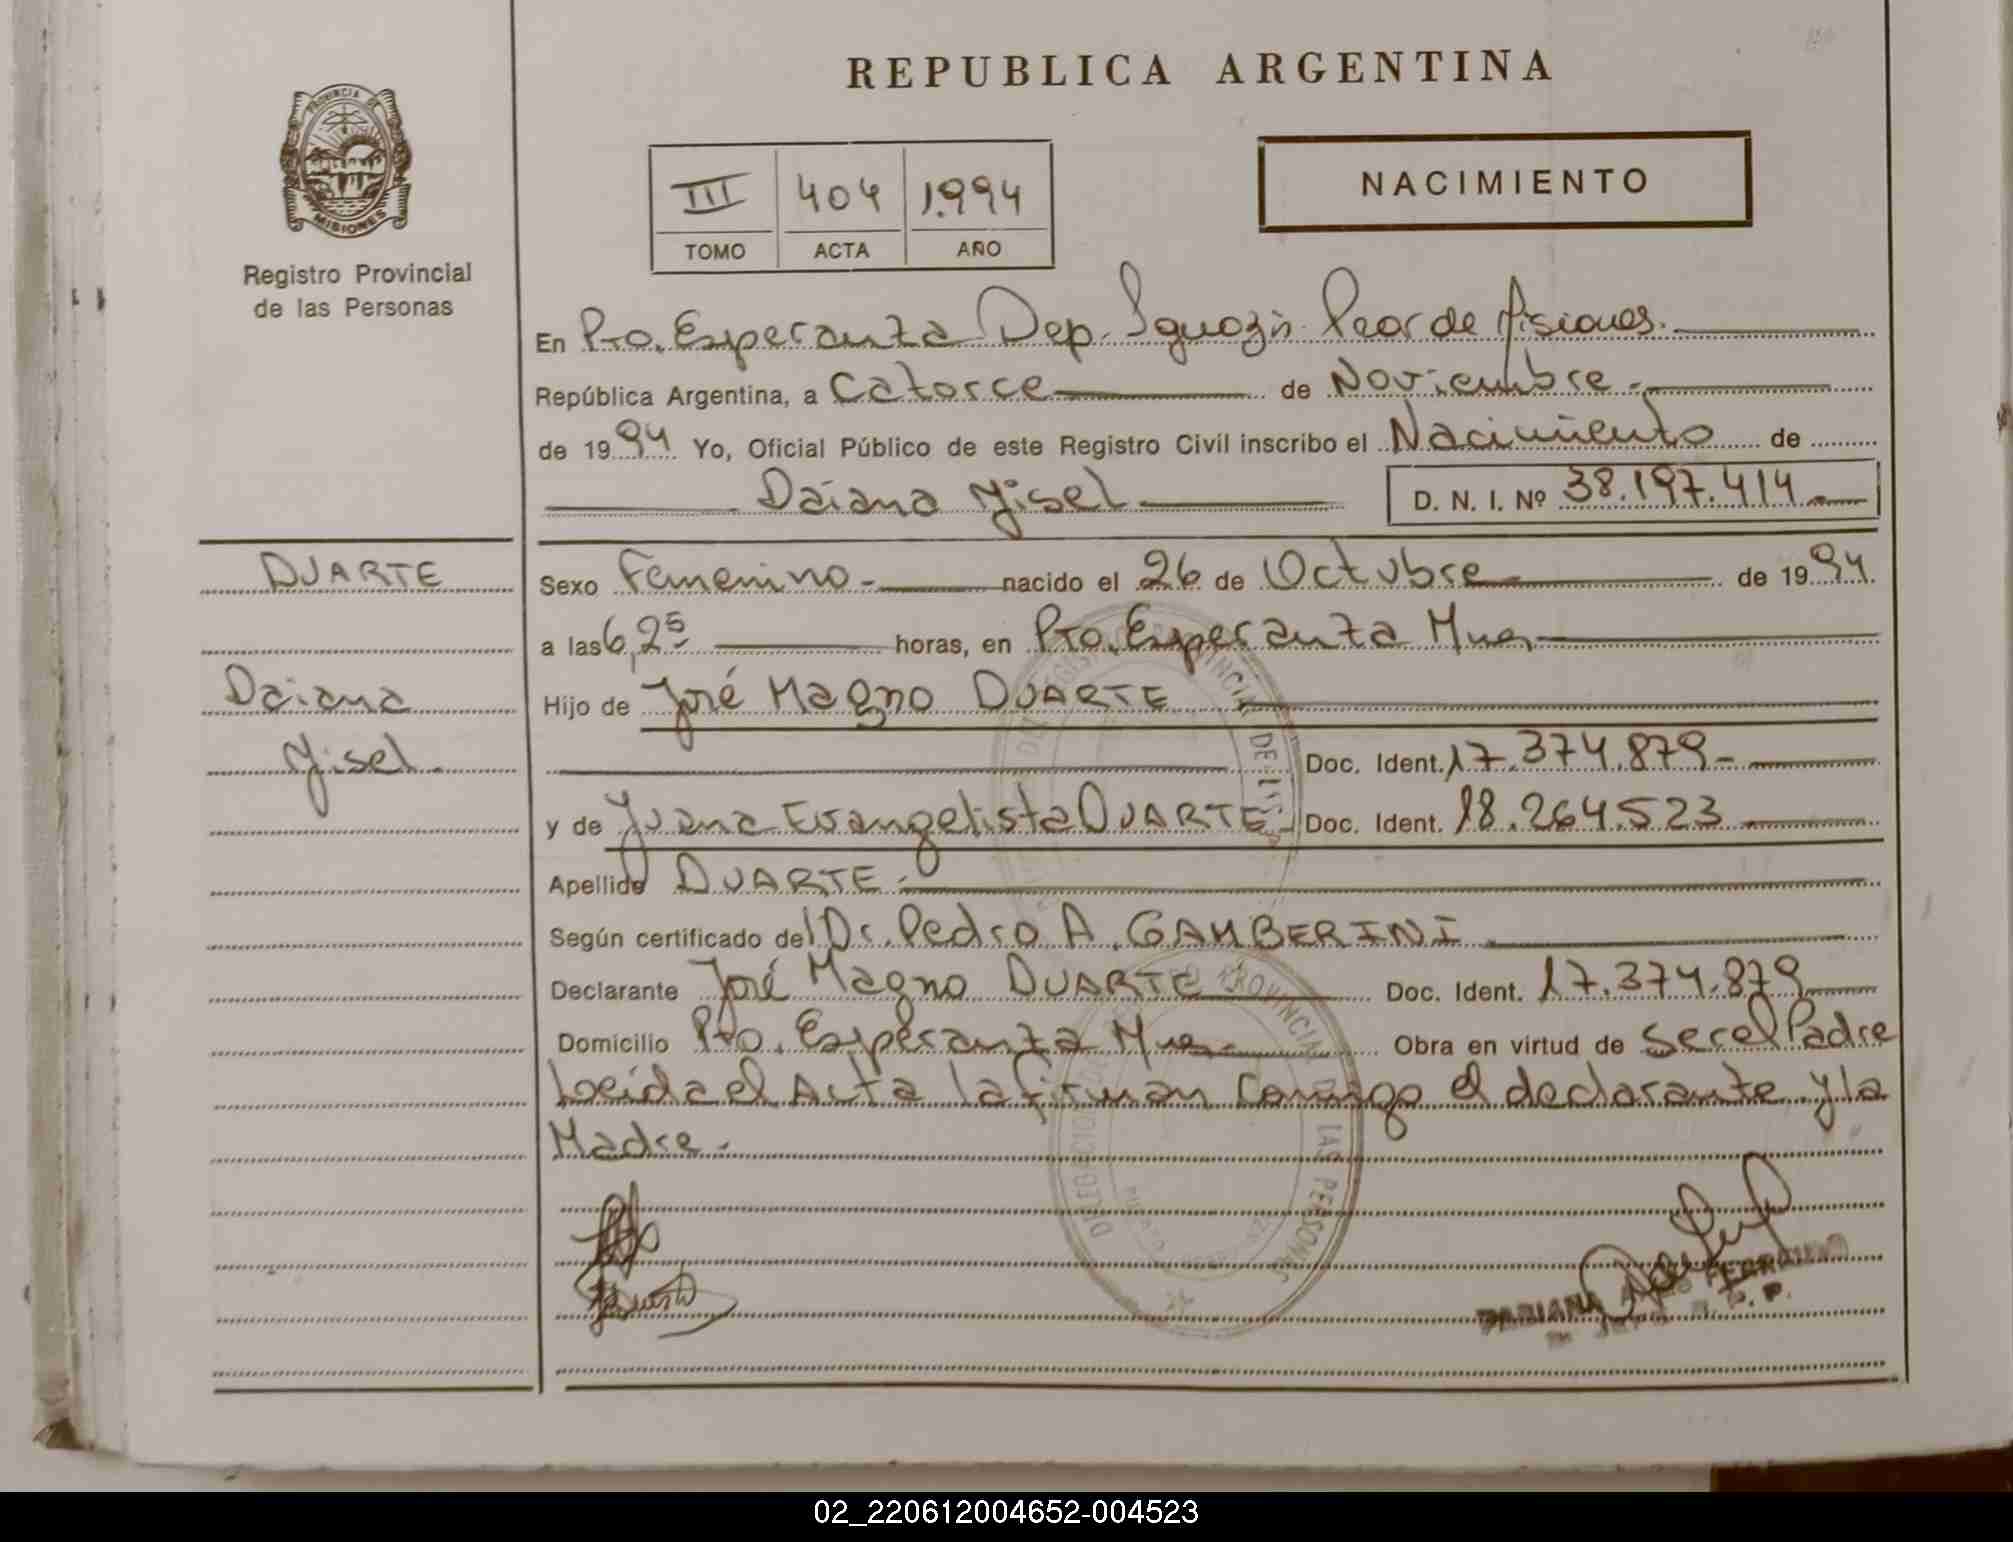 REPUBLICA ARGENTINA
PROVINCIA DE
MISIONES
Registro Provincial
de las Personas
III 404 1.994
TOMO ACTA AÑO
NACIMIENTO
En Pto. Esperanza Dep. Iguazú Pcia de Misiones.
República Argentina, a Catorce de Noviembre.
de 1994 Yo, Oficial Público de este Registro Civil inscribo el Nacimiento de
Daiana Yisel D. N. I. Nº 38.197.414
DUARTE
Daiana
Yisel.
Sexo Femenino nacido el 26 de Octubre de 1994.
a las 6,25 horas, en Pto. Esperanza Mnes
Hijo de José Magno DUARTE
Doc. Ident. 17.374.879
y de Juana Evangelista DUARTE Doc. Ident. 18.264.523
Apellido DUARTE.
Según certificado del Dr. Pedro A. GAMBERINI
Declarante José Magno DUARTE Doc. Ident. 17.374.879
Domicilio Pto. Esperanza Mnes Obra en virtud de ser el Padre
Leida el Acta la firman conmigo el declarante y la
Madre.
02_220612004652-004523